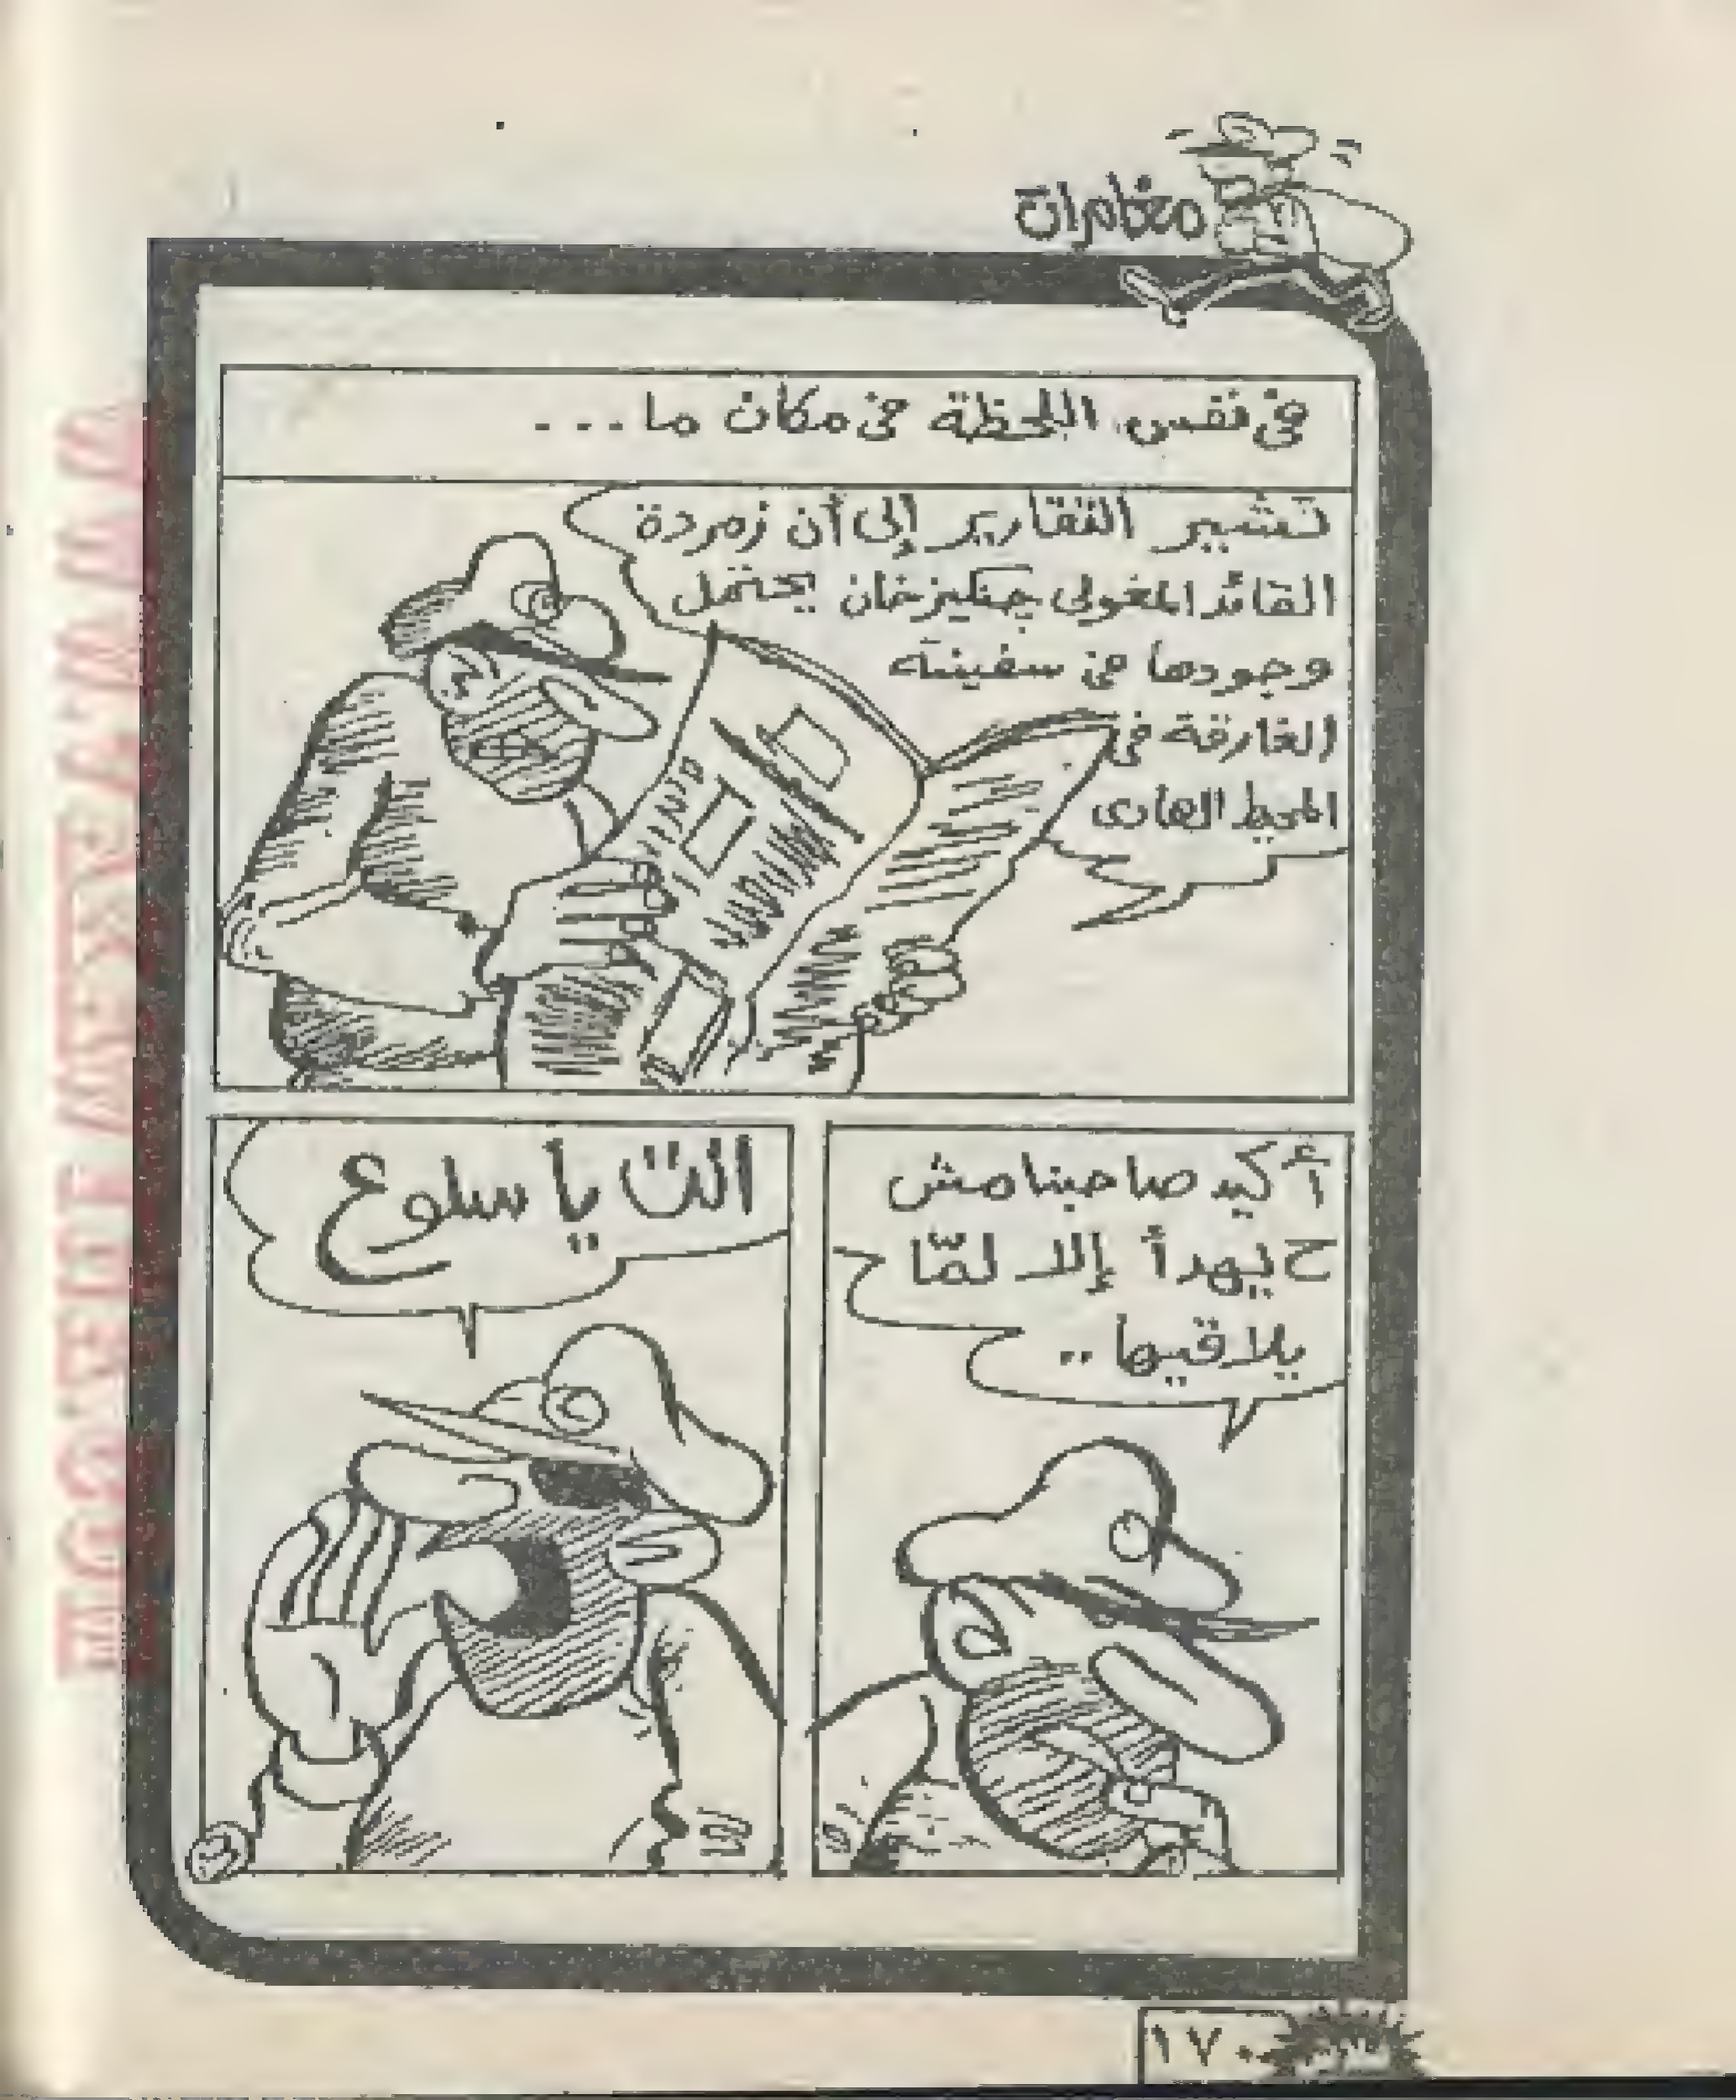 مغامرات
في نفس اللحظة في مكان ما...
تشير التقارير إلى أن زمردة
القائد المغولي جنكيز خان يحتمل
وجودها في سفينته
الغارقة في
المحيط الهادى
أكيد صاحبنا مش
ح يهدأ إلا لمّا
يلاقيها..
يا سلوع
١٧٠